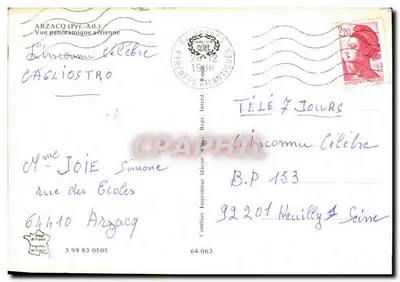 ARZACQ (Pyr.-Atl.)
Vue panoramique aérienne
L'inconnu Célèbre
CAGLIOSTRO
Mme JOIE Simone
rue des Ecoles
64410 Arzacq
3 99 83 0505
64.063
Combier Imprimeur Mâcon
12
1986
PYRENEES ATLANTIQUES
2,20
TÉLÉ 7 JOURS
L'inconnu Célèbre
B.P 153
92201 Neuilly s/ Seine
CPAPHIL